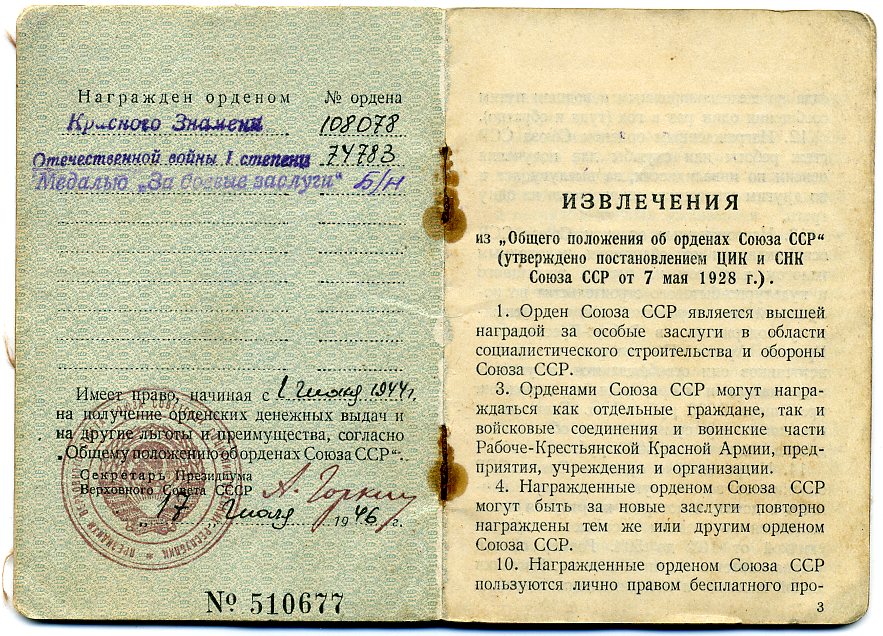 Награжден орденом № ордена
Красного Знамени 108078
Отечественной войны I степени 74783
Медалью „За боевые заслуги" Б/Н
Имеет право, начиная с 1 1944 г.
на получение орденских денежных выдач и
на другие льготы и преимущества, согласно
„Общему положению об орденах Союза ССР".
Секретарь Президиума
Верховного Совета ССCP А. Горкин
„17 1946 г.
№ 510677
ИЗВЛЕЧЕНИЯ
из „Общего положения об орденах Союза ССР“
(утверждено постановлением ЦИК и СНК
Союза ССР от 7 мая 1928 г.).
1. Орден Союза ССР является высшей
наградой за особые заслуги в области
социалистического строительства и обороны
Союза ССР.
3. Орденами Союза ССР могут награ-
ждаться как отдельные граждане, так и
войсковые соединения и воинские части
Рабоче-Крестьянской Красной Армии, пред-
приятия, учреждения и организации.
4. Награжденные орденом Союза ССР
могут быть за новые заслуги повторно
награждены тем же или другим орденом
Союза ССР.
10. Награжденные орденом Союза ССР
пользуются лично правом бесплатного про-
3